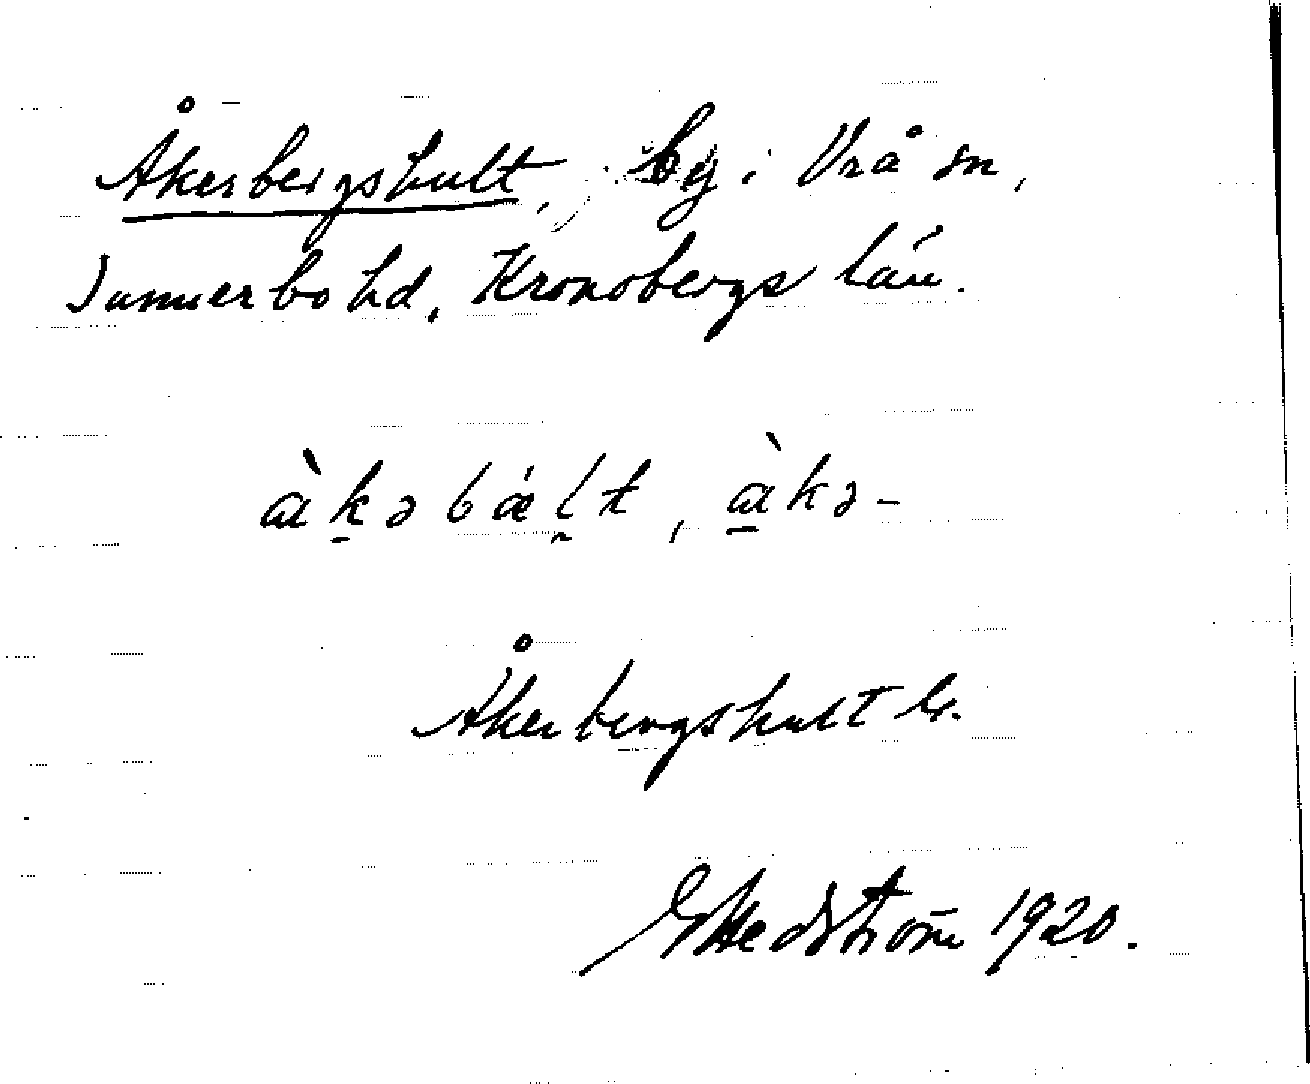 Åkerbergshult, by i Vrå sn,
Sunnerbo hd, Kronobergs län.
àkəbæ̀ɭt, àkə-
Åkerbergshult Gr.
G Hedström 1920.